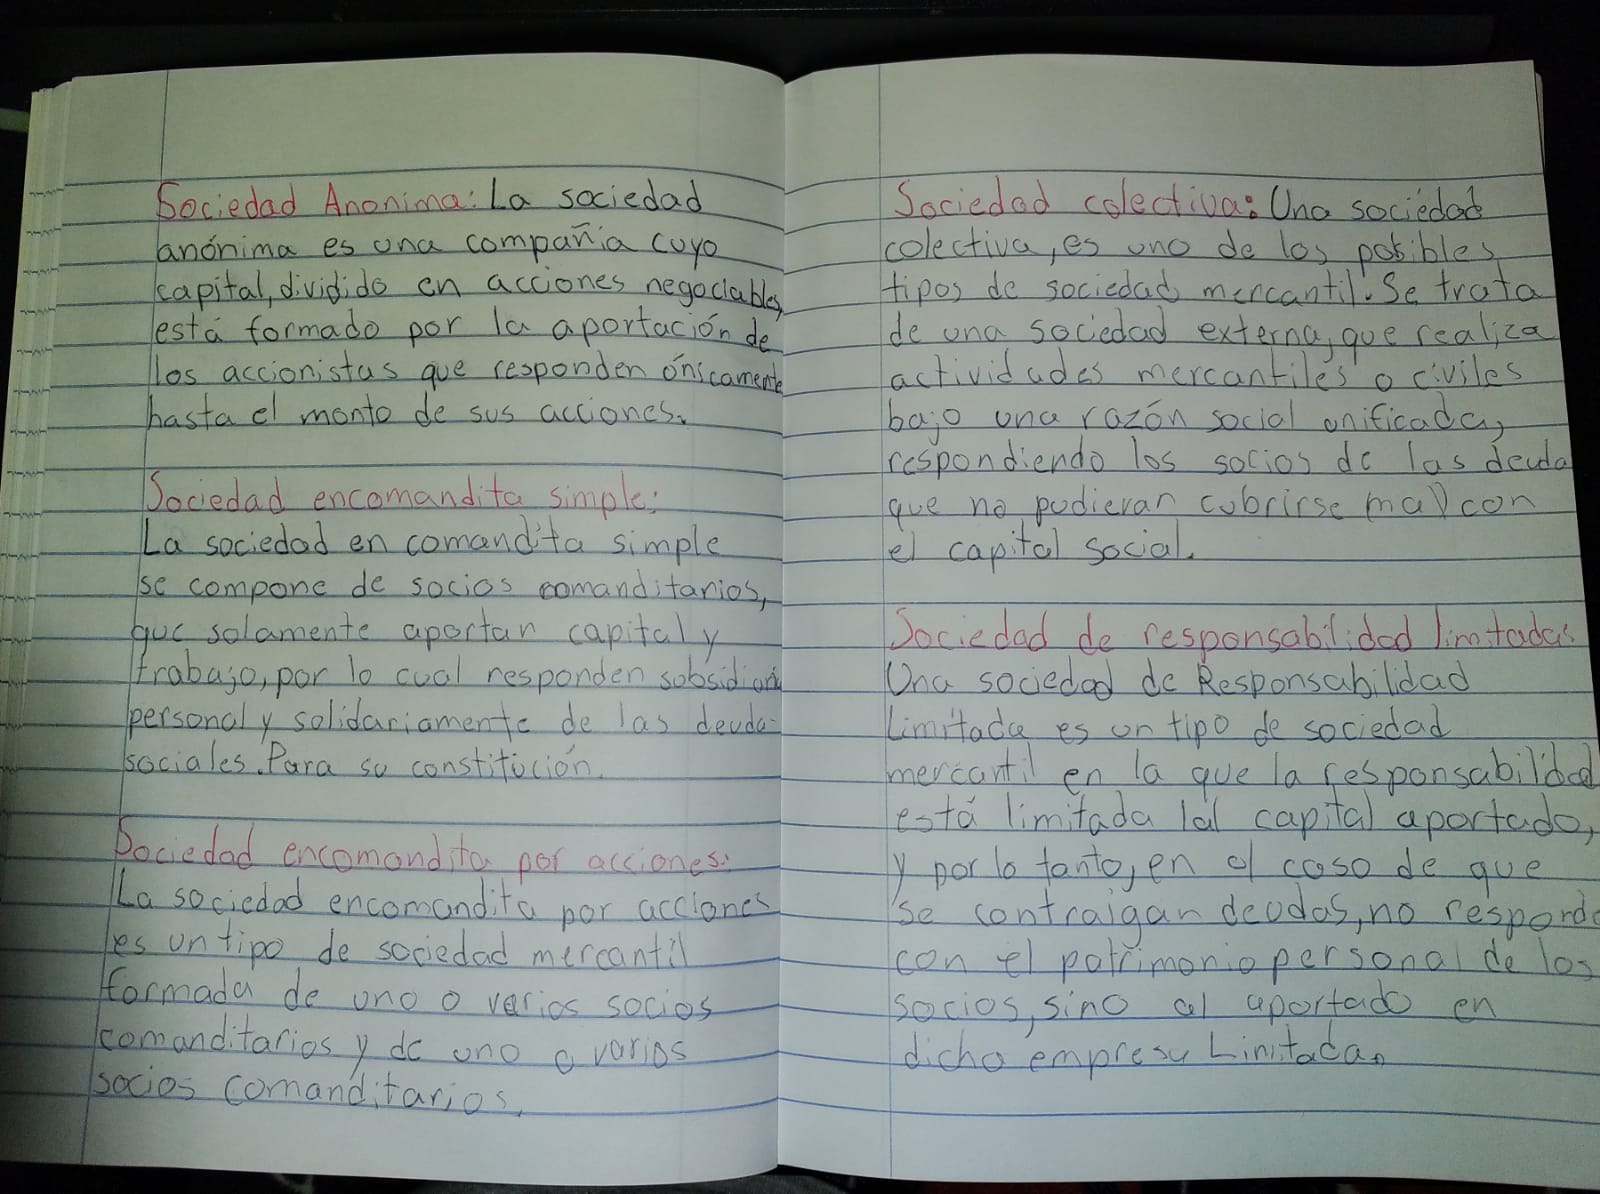 Sociedad Anonima: La sociedad
anónima es una compañia cuyo
capital, dividido en acciones negociables,
está formado por la aportación de
los accionistas que responden únicamente
hasta el monto de sus acciones.
Sociedad encomandita simple:
La sociedad en comandita simple
se compone de socios comanditarios,
que solamente aportan capital y
trabajo, por lo cual responden subsidiari
personal y solidariamente de las deuda
sociales. Para su constitución.
Sociedad encomandita por acciones:
La sociedad encomandita por acciones
es un tipo de sociedad mercantil
formada de uno o varios socios
comanditarios y de uno o varios
socios comanditarios.
Sociedad colectiva: Una sociedad
colectiva, es uno de los posibles
tipos de sociedad mercantil. Se trata
de una sociedad externa, que realiza
actividades mercantiles o civiles
bajo una razón social unificada,
respondiendo los socios de las deuda
que no pudieran cubrirse (ma) con
el capital social.
Sociedad de responsabilidad limitadas
Una sociedad de Responsabilidad
Limitada es un tipo de sociedad
mercantil en la que la responsabilidad
está limitada lal capital aportado,
y por lo tanto, en el caso de que
se contraigan deudas, no responde
con el patrimonio personal de los
socios, sino al aportado en
dicha empresa Linitada.